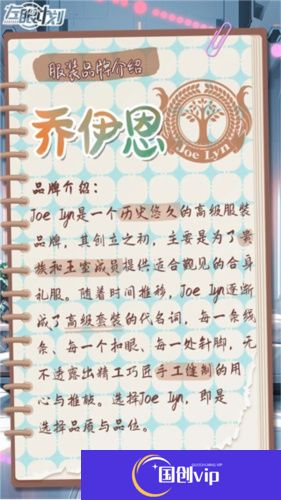 左眼计划
服装品牌介绍
乔伊恩
Joe Lyn
品牌介绍：
Joe Iyn是一个历史悠久的高级服装
品牌，其创立之初，主要是为了贵
族和王室成员提供适合觐见的合身
礼服。随着时间推移，Joe Iyn逐渐
成了高级套装的代名词，每一条线
条、每一个扣眼、每一处针脚，无
不透露出精工巧匠手工缝制的用
心与推敲。选择Joe Iyn，即是
选择品质与品位。
国创vip